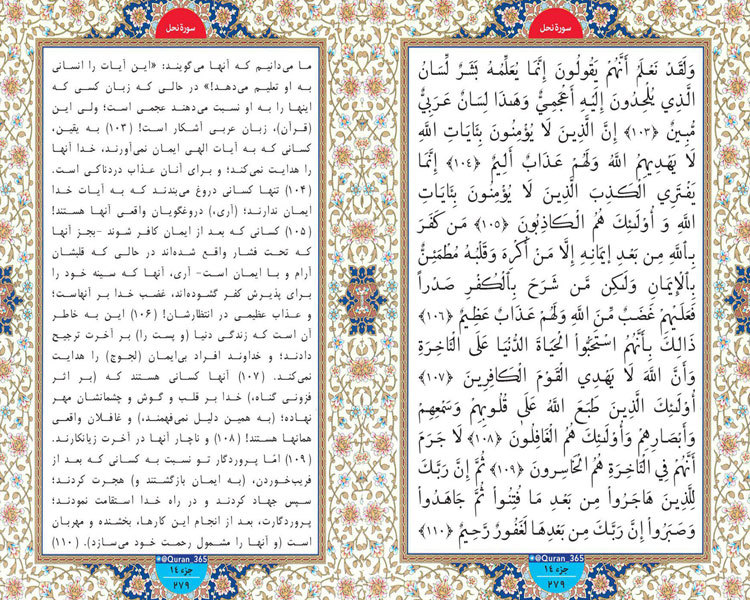 سورهٔ نحل
وَلَقَدْ نَعْلَمُ أَنَّهُمْ يَقُولُونَ إِنَّمَا يُعَلِّمُهُ بَشَرٌ لِّسَانُ
الَّذِي يُلْحِدُونَ إِلَيْهِ أَعْجَمِيٌّ وَهَٰذَا لِسَانٌ عَرَبِيٌّ
مُّبِينٌ ﴿۱۰۳﴾ إِنَّ الَّذِينَ لَا يُؤْمِنُونَ بِئَايَاتِ اللَّهِ
لَا يَهْدِيهِمُ اللَّهُ وَلَهُمْ عَذَابٌ أَلِيمٌ ﴿۱۰۴﴾ إِنَّمَا
يَفْتَرِي الْكَذِبَ الَّذِينَ لَا يُؤْمِنُونَ بِئَايَاتِ
اللَّهِ وَ أُوْلَٰئِكَ هُمُ الْكَاذِبُونَ ﴿۱۰۵﴾ مَن كَفَرَ
بِاللَّهِ مِن بَعْدِ إِيمَانِهِ إِلَّا مَنْ أُكْرِهَ وَقَلْبُهُ مُطْمَئِنٌّ
بِالْإِيمَانِ وَلَٰكِن مَّن شَرَحَ بِالْكُفْرِ صَدْراً
فَعَلَيْهِمْ غَضَبٌ مِّنَ اللَّهِ وَلَهُمْ عَذَابٌ عَظِيمٌ ﴿۱۰۶﴾
ذَالِكَ بِأَنَّهُمُ اسْتَحَبُّواْ الْحَيَاةَ الدُّنْيَا عَلَى الْئَاخِرَةِ
وَأَنَّ اللَّهَ لَا يَهْدِي الْقَوْمَ الْكَافِرِينَ ﴿۱۰۷﴾
أُوْلَٰئِكَ الَّذِينَ طَبَعَ اللَّهُ عَلَىٰ قُلُوبِهِمْ وَسَمْعِهِمْ
وَأَبْصَارِهِمْ وَأُوْلَٰئِكَ هُمُ الْغَافِلُونَ ﴿۱۰۸﴾ لَا جَرَمَ
أَنَّهُمْ فِي الْئَاخِرَةِ هُمُ الْخَاسِرونَ ﴿۱۰۹﴾ ثُمَّ إِنَّ رَبَّكَ
لِلَّذِينَ هَاجَرُواْ مِن بَعْدِ مَا فُتِنُواْ ثُمَّ جَاهَدُواْ
وَصَبَرُواْ إِنَّ رَبَّكَ مِن بَعْدِهَا لَغَفُورٌ رَّحِيمٌ ﴿۱۱۰﴾
@Quran_365
جزء ۱٤
۲۷۹
سورهٔ نحل
ما می‌دانیم که آنها می‌گویند: «این آیات را انسانی
به او تعلیم می‌دهد!» در حالی که زبان کسی که
اینها را به او نسبت می‌دهند عجمی است؛ ولی این
(قرآن)، زبان عربی آشکار است! (۱۰۳) به یقین،
کسانی که به آیات الهی ایمان نمی‌آورند، خدا آنها
را هدایت نمی‌کند؛ و برای آنان عذاب دردناکی است.
(۱۰۴) تنها کسانی دروغ می‌بندند که به آیات خدا
ایمان ندارند؛ (آری،) دروغگویان واقعی آنها هستند!
(۱۰۵) کسانی که بعد از ایمان کافر شوند -بجز آنها
که تحت فشار واقع شده‌اند در حالی که قلبشان
آرام و با ایمان است- آری، آنها که سینه خود را
برای پذیرش کفر گشوده‌اند، غضب خدا بر آنهاست؛
و عذاب عظیمی در انتظارشان! (۱۰۶) این به خاطر
آن است که زندگی دنیا (و پست را) بر آخرت ترجیح
دادند؛ و خداوند افراد بی‌ایمان (لجوج) را هدایت
نمی‌کند. (۱۰۷) آنها کسانی هستند که (بر اثر
فزونی گناه،) خدا بر قلب و گوش و چشمانشان مهر
نهاده؛ (به همین دلیل نمی‌فهمند،) و غافلان واقعی
همانها هستند! (۱۰۸) و ناچار آنها در آخرت زیانکارند.
(۱۰۹) امّا پروردگار تو نسبت به کسانی که بعد از
فریب‌خوردن، (به ایمان بازگشتند و) هجرت کردند؛
سپس جهاد کردند و در راه خدا استقامت نمودند؛
پروردگارت، بعد از انجام این کارها، بخشنده و مهربان
است (و آنها را مشمول رحمت خود می‌سازد). (۱۱۰)
@Quran_365
جزء ۱٤
۲۷۹